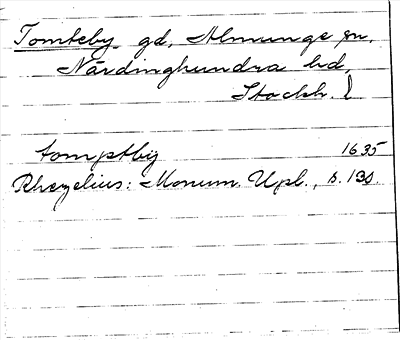 Tomteby gd, Almunge sn,
Närdinghundra hd,
Stockh. l
tomptby 1635
Rhezelius: Monum. Upl., s. 130.